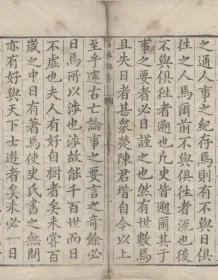 之通人事之紀存焉則不與日俱
往之人焉爾前不與俱往者流也後
不與俱往者題也凡史皆題爾其于
且失日者甚衆矣陳君塏自令以上
事之要者必日謹之也然有待數焉
至乎邃古亡論事之要言之奇餘必
日焉所以渉也渉故能千百世而日
不虛也夫人有好自樹者矣未嘗百
歲之中日有著焉使史氏書之無間
亦有好與天下士遊者矣未必一日